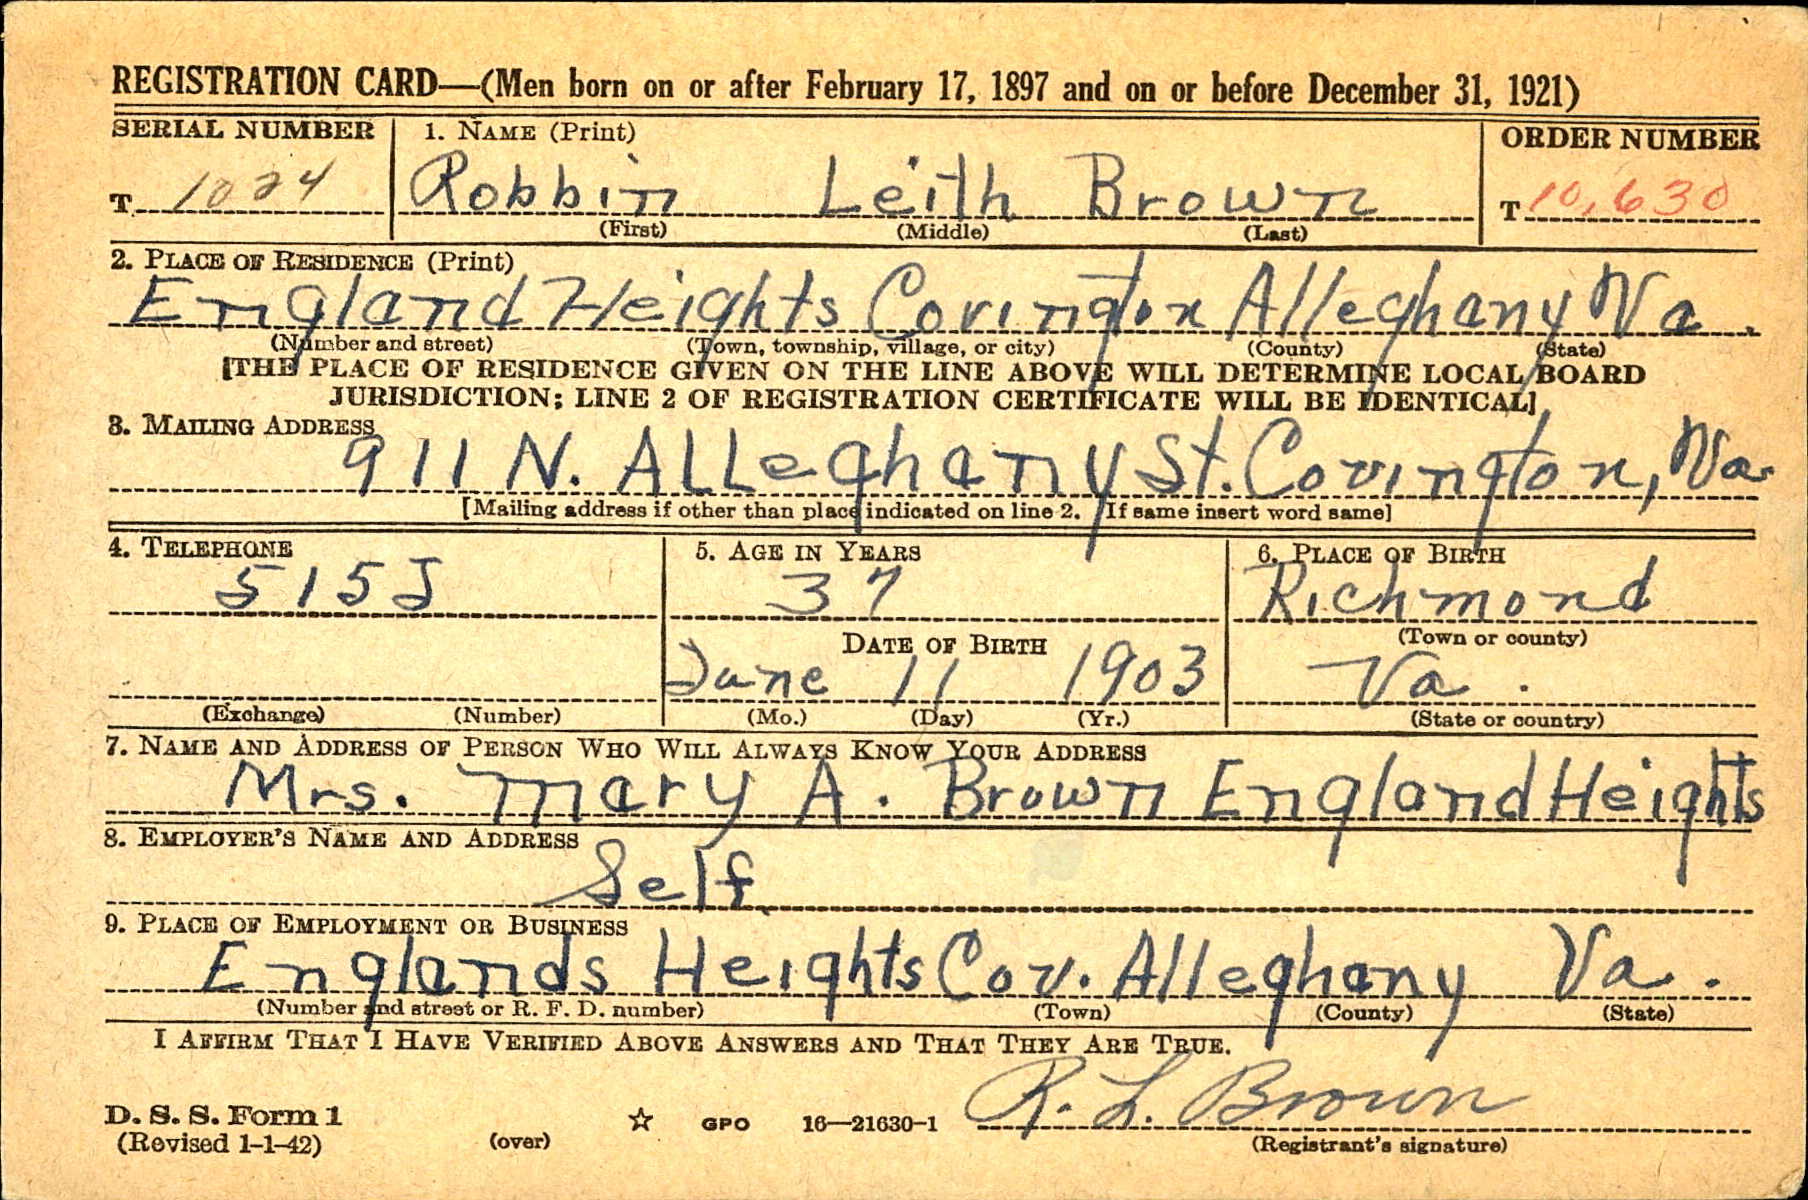 REGISTRATION CARD—(Men born on or after February 17, 1897 and on or before December 31, 1921)
SERIAL NUMBER 1. NAME (Print) ORDER NUMBER
T 1024 Robbin Leith Brown T 10,630
(First) (Middle) (Last)
2. PLACE OF RESIDENCE (Print)
England Heights Covington Alleghany Va.
(Number and street) (Town, township, village, or city) (County) (State)
[THE PLACE OF RESIDENCE GIVEN ON THE LINE ABOVE WILL DETERMINE LOCAL BOARD
JURISDICTION; LINE 2 OF REGISTRATION CERTIFICATE WILL BE IDENTICAL]
3. MAILING ADDRESS
911 N. Alleghany St. Covington, Va.
[Mailing address if other than place indicated on line 2. If same insert word same]
4. TELEPHONE 5. AGE IN YEARS 6. PLACE OF BIRTH
515J 37 Richmond
DATE OF BIRTH (Town or county)
June 11 1903 Va.
(Exchange) (Number) (Mo.) (Day) (Yr.) (State or country)
7. NAME AND ADDRESS OF PERSON WHO WILL ALWAYS KNOW YOUR ADDRESS
Mrs. Mary A. Brown England Heights
8. EMPLOYER'S NAME AND ADDRESS
Self.
9. PLACE OF EMPLOYMENT OR BUSINESS
Englands Heights Cov. Alleghany Va.
(Number and street or R. F. D. number) (Town) (County) (State)
I AFFIRM THAT I HAVE VERIFIED ABOVE ANSWERS AND THAT THEY ARE TRUE.
R. L. Brown
D. S. S. Form 1
(Revised 1-1-42) (over) ☆ GPO 16—21630-1 (Registrant's signature)